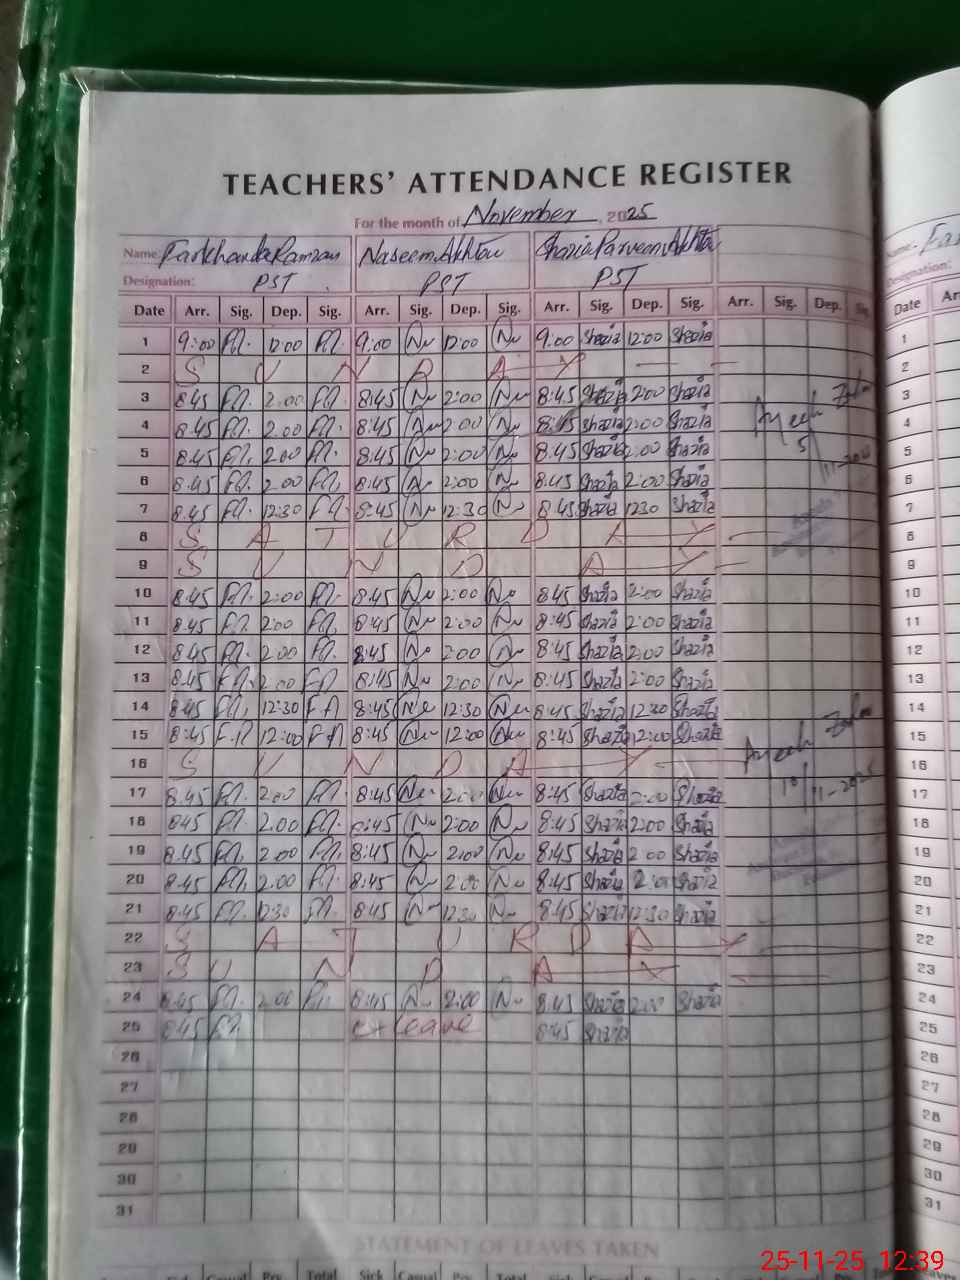 TEACHERS' ATTENDANCE REGISTER
For the month of November, 2025
Name: Farkhanda Ramzan Naseem Akhtar Shazia Parveen Akhtar
Designation: PST PST PST
Date Arr. Sig. Dep. Sig. Arr. Sig. Dep. Sig. Arr. Sig. Dep. Sig. Arr. Sig. Dep. Sig.
1 9:00 12:00 9:00 12:00 9:00 Shazia 12:00 Shazia
2 S U N D A Y
3 8.45 2.00 8:45 2:00 8:45 Shazia 2:00 Shazia
4 8.45 2.00 8.45 2:00 8:45 Shazia 2:00 Shazia
5 8.45 2.00 8.45 2:00 8.45 Shazia 2:00 Shazia
6 8.45 2.00 8:45 2:00 8.45 Shazia 2:00 Shazia
7 8.45 12:30 8:45 12:30 8.45 Shazia 1230 Shazia
8 S A T U R D A Y
9 S U N D A Y
10 8.45 2:00 8.45 2:00 8.45 Shazia 2:00 Shazia
11 8.45 2:00 8:45 2:00 8:45 Shazia 2:00 Shazia
12 8.45 2.00 8:45 2:00 8:45 Shazia 2:00 Shazia
13 8.45 2.00 8:45 2:00 8:45 Shazia 2:00 Shazia
14 8.45 12:30 F.A 8:45 12:30 8:45 Shazia 12:30 Shazia
15 8:45 F.A 12:00 F.A 8:45 12:00 8:45 Shazia 12:00 Shazia
16 S U N D A Y
17 8.45 2.00 8:45 2:00 8:45 Shazia 2:00 Shazia
18 845 2.00 8:45 2:00 8:45 Shazia 2:00 Shazia
19 8.45 2.00 8:45 2:00 8:45 Shazia 2:00 Shazia
20 8.45 2.00 8:45 2:00 8:45 Shazia 2:00 Shazia
21 8:45 12:30 8:45 12:30 8:45 Shazia 12:30 Shazia
22 S A T U R D A Y
23 S U N D A Y
24 8.45 2.00 8:45 2:00 8.45 Shazia 2:00 Shazia
25 8.45 leave 8:45 Shazia
26
27
28
29
30
31
STATEMENT OF LEAVES TAKEN
Sick Casual Prv. Total Sick Casual Prv. Total Sick Casual Prv. Total
Name:
Designation:
Date
1
2
3
4
5
6
7
8
9
10
11
12
13
14
15
16
17
18
19
20
21
22
23
24
25
26
27
28
29
30
31
25-11-25 12:39